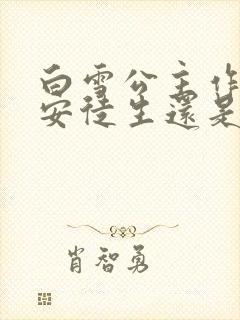 白雪公主作
安徒生還是
肖智勇